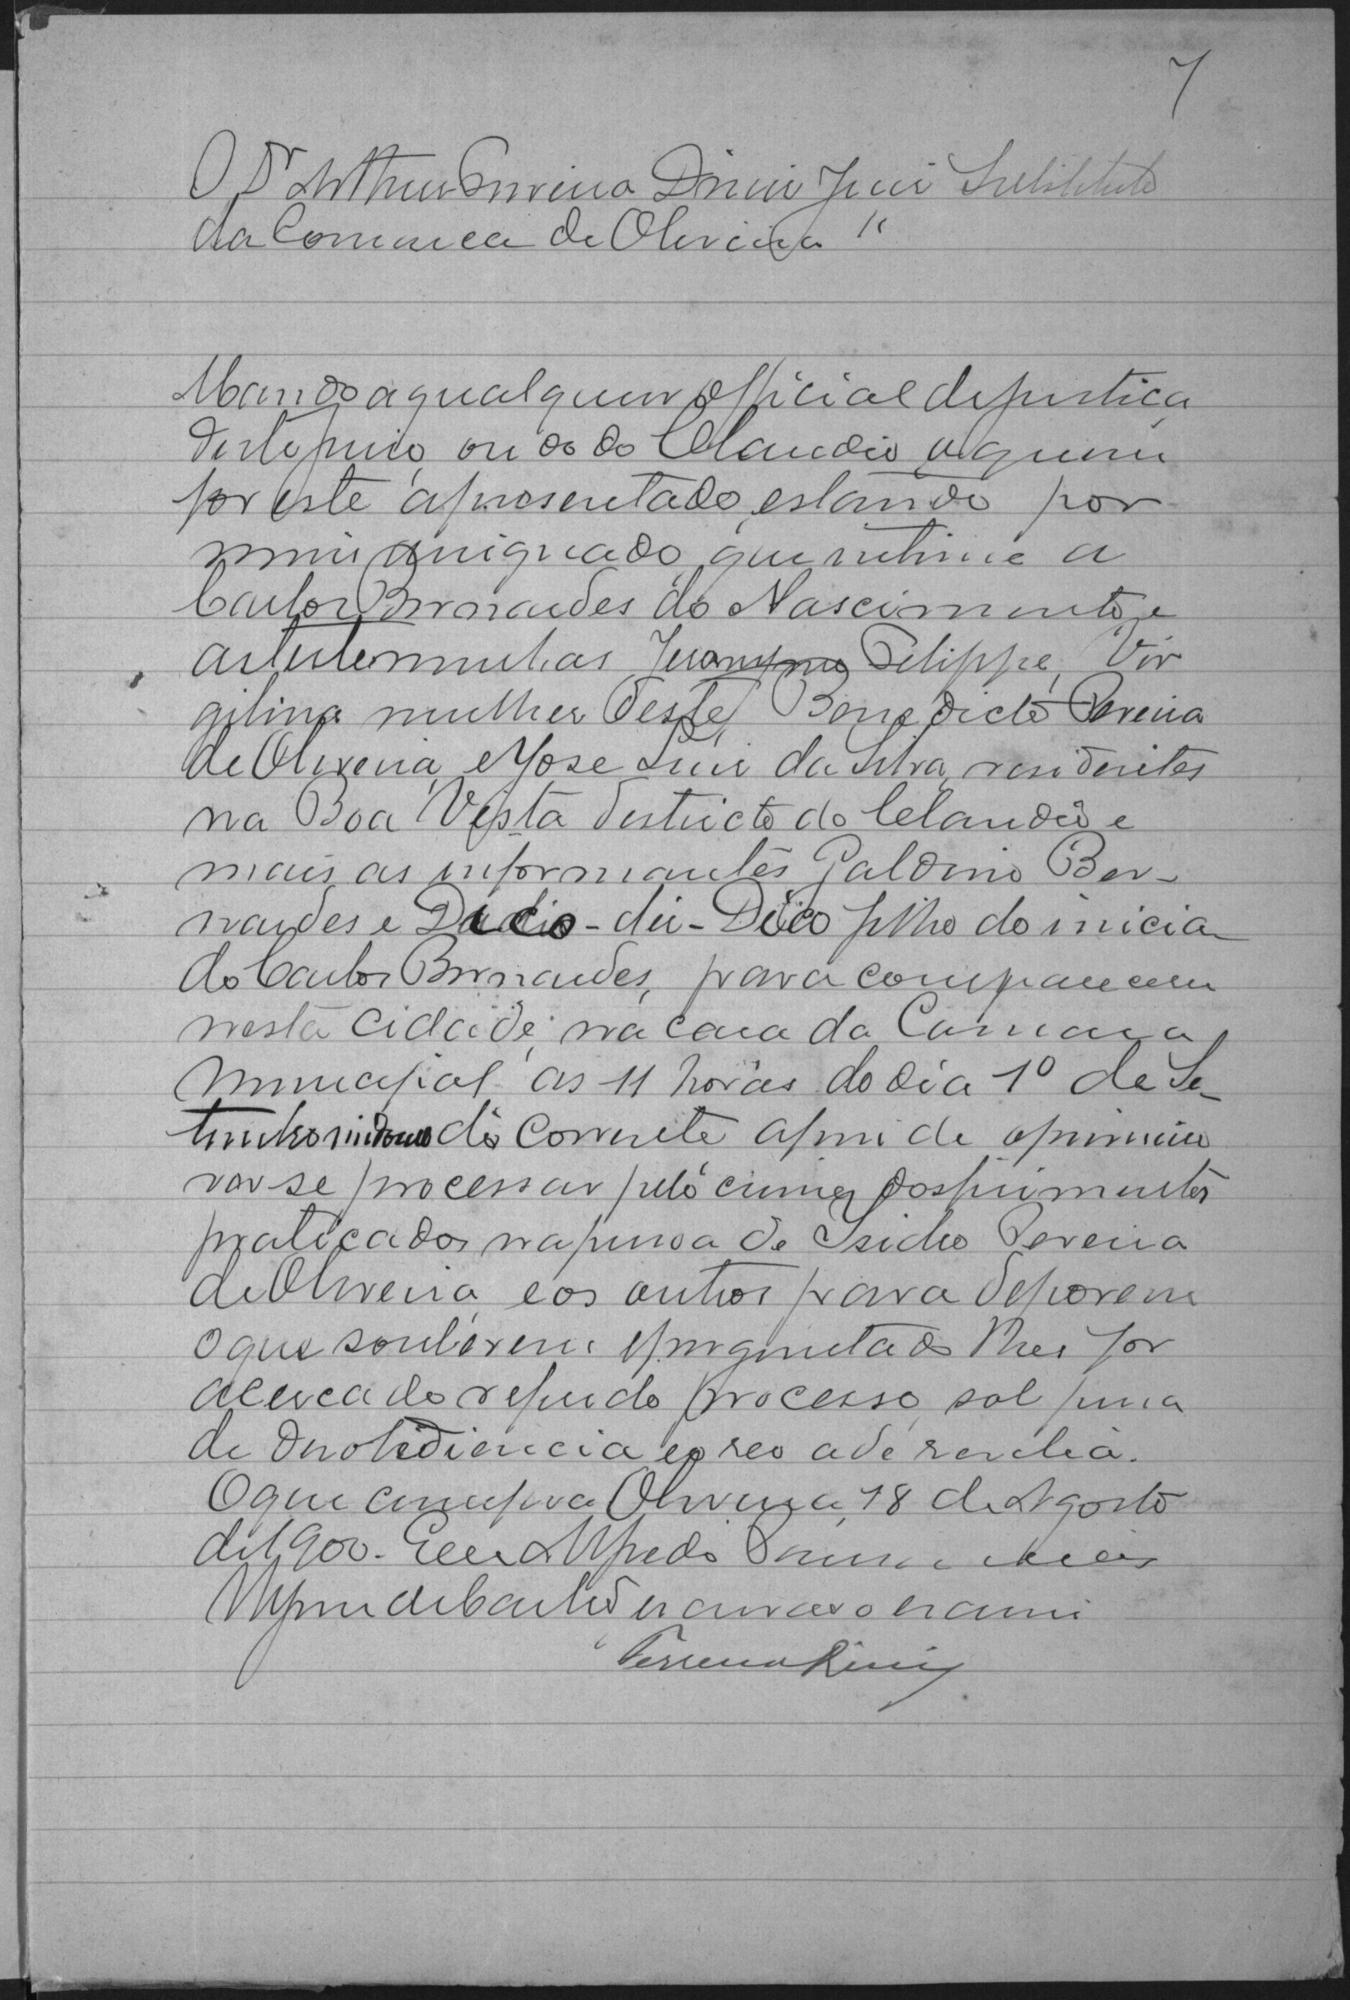 7
O Dr Arthur Ferreira Diniz Juiz Substituto
da Comarca de Oliveira "
Mando a qualquer official de justiça
deste juizo, ou do do Claudio a quem
for este apresentado, estando por
mim assignado, que intime a
Carlos Bernardes do Nascimento e
as testemunhas Jeronymo Felippe, Vir
gilina mulher deste, Benedicto Pereira
de Oliveira, e Jose Luiz da Silva, residentes
na Boa Vista districto do Claudio e
mais as informantes Galdino Ber-
nardes e Dico filho do inicia
do Carlos Bernardes, para comparecerem
nesta cidade, na casa da Camara
Municipal as 11 horas do dia 1º de Se-
tembro do corrente afim de o primeiro
ver se processar pelo crime dos ferimentos
praticados na pessoa de Isidro Pereira
de Oliveira, e os outros para deporem
o que souberem e perguntado lhes for
acerca do referido processo, sob pena
de desobediencia e o reo a de revelia.
O que cumpra Oliveira, 18 de Agosto
de 1900. Eu Alfredo
de Castro escrivão o escrevi
Ferreira Diniz